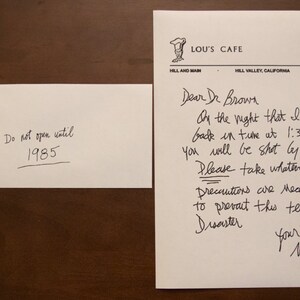 Do not open until
1985
LOU'S CAFE
HILL AND MAIN · HILL VALLEY, CALIFORNIA
Dear Dr Brown
On the night that I
back in time at 1:3
you will be shot by
Please take whatev
precautions are nec
to prevent this te
Disaster
your